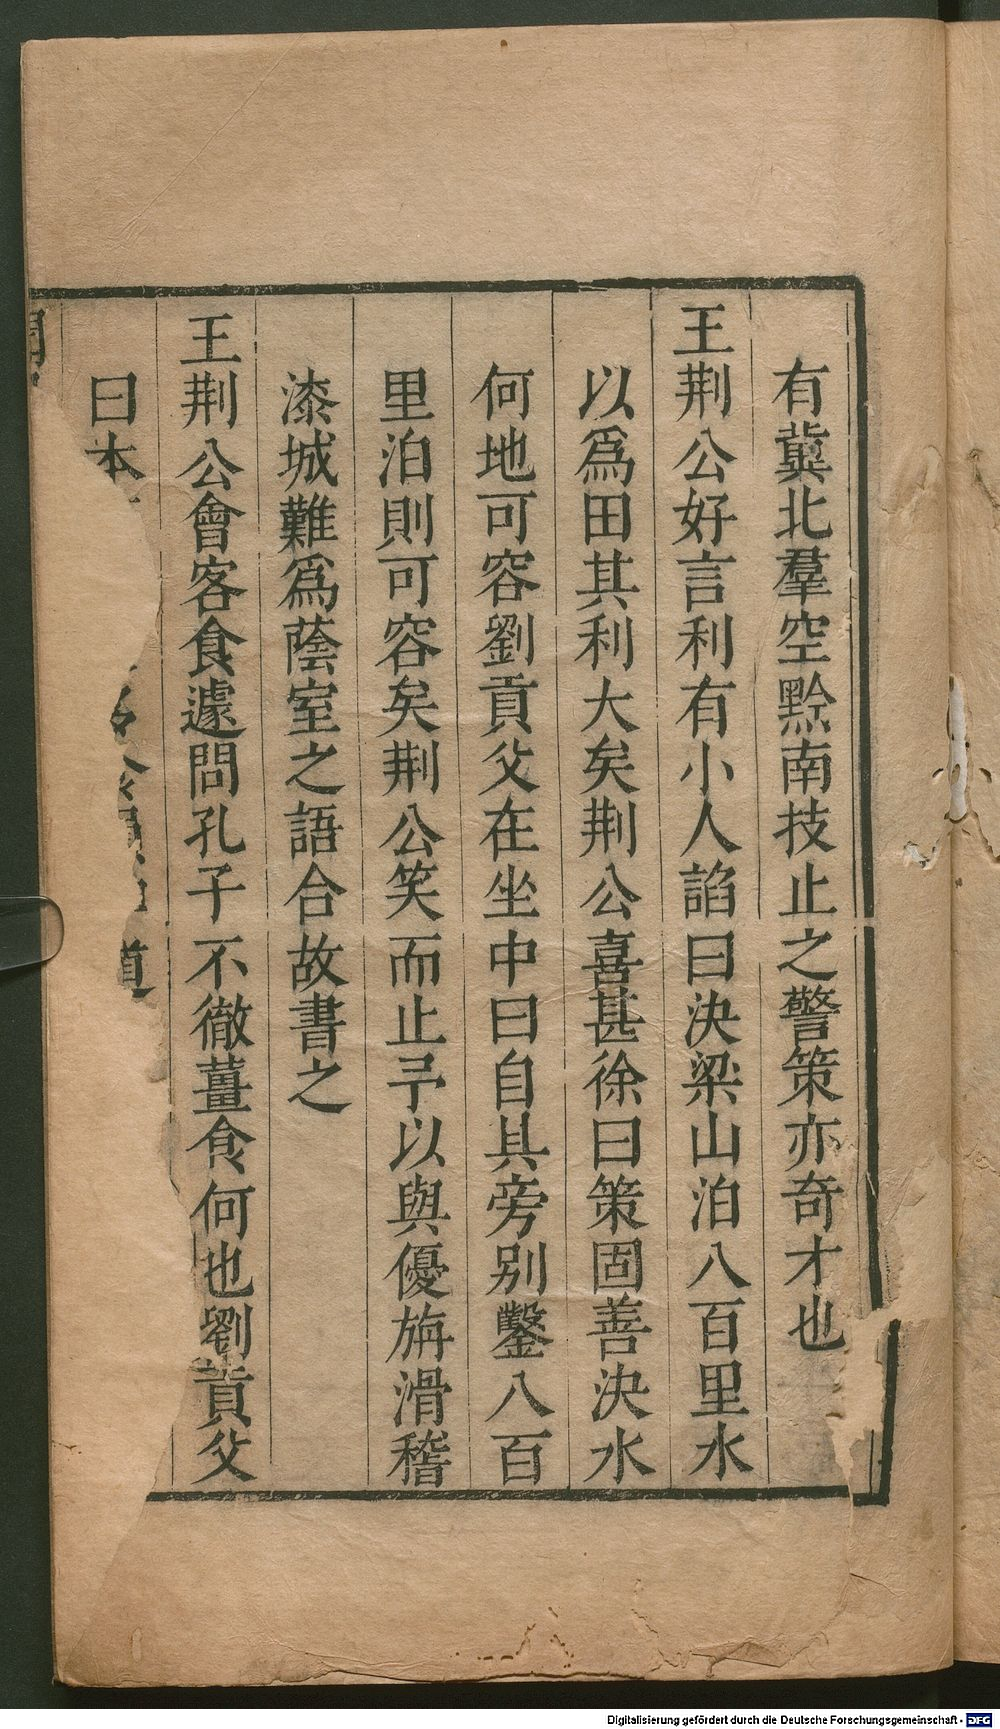 有冀北羣空黔南技止之警策亦奇才也
王荆公好言利有小人諂曰決梁山泊八百里水
以爲田其利大矣荆公喜甚徐曰策固善決水
何地可容劉貢父在坐中曰自其旁別鑿八百
里泊則可容矣荆公笑而止予以與優旃滑稽
漆城難爲蔭室之語合故書之
王荆公會客食遽問孔子不徹薑食何也劉貢父
曰本
道
Digitalisierung gefördert durch die Deutsche Forschungsgemeinschaft - DFG